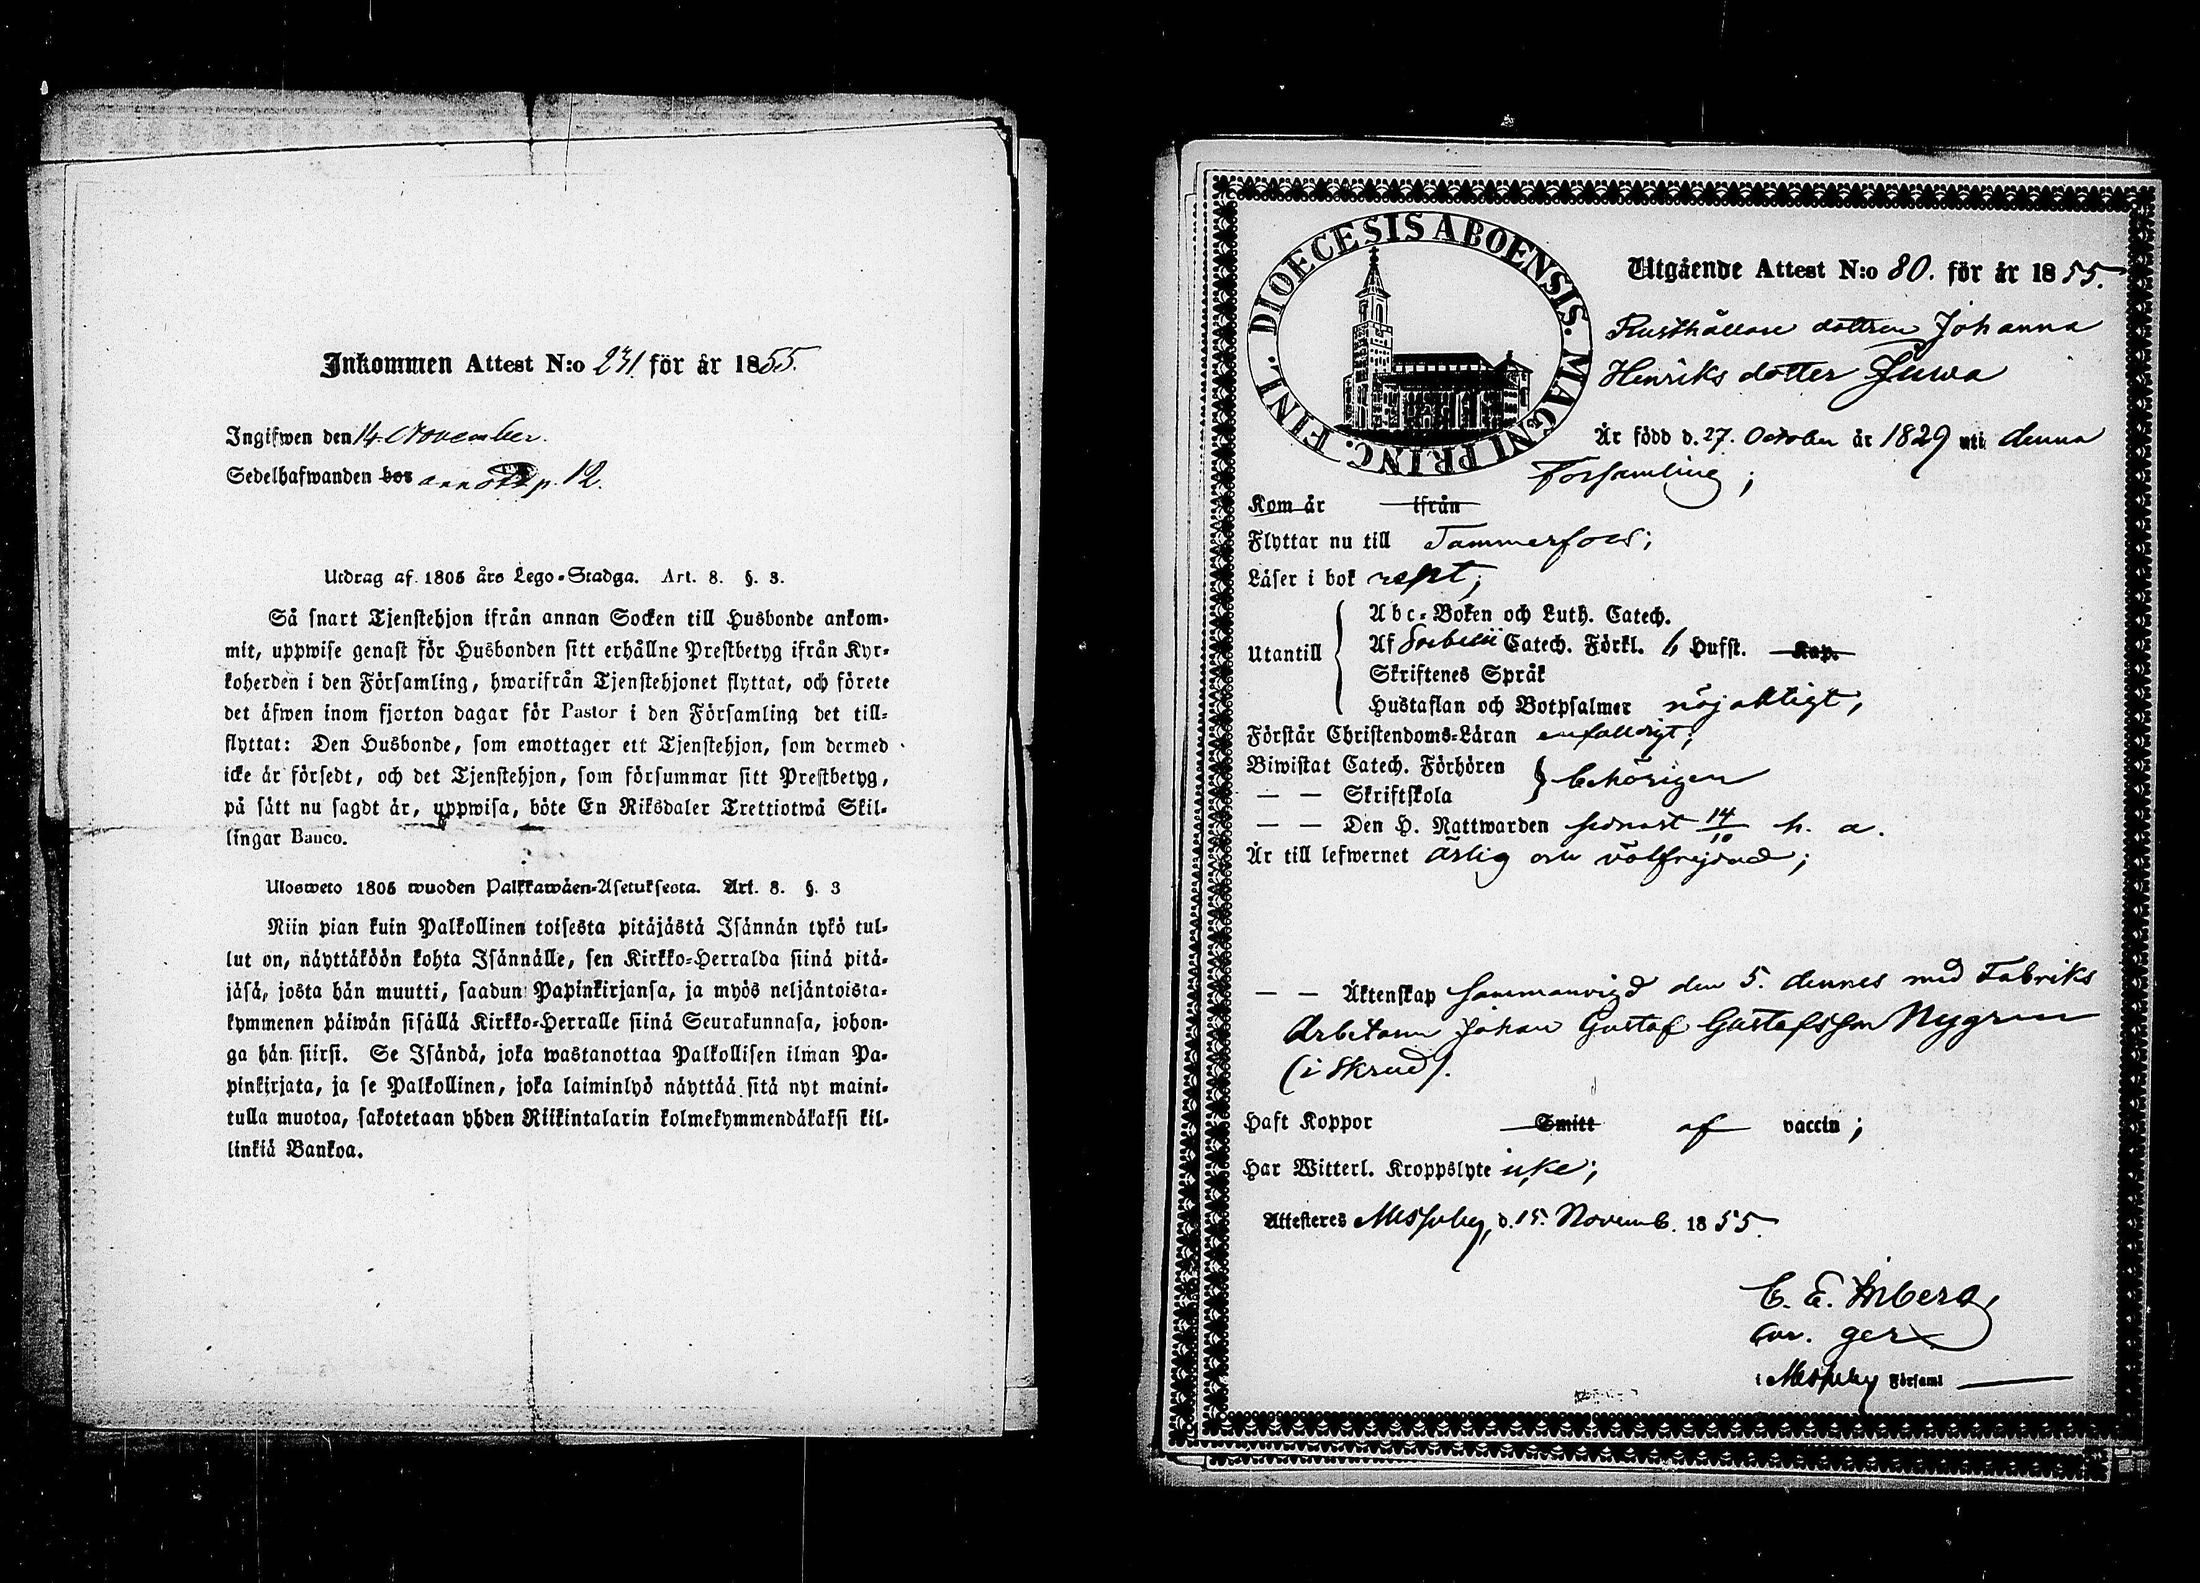 Inkommen Attest N:o 231 för år 1855.
Ingifwen den 14 November.
Sedelhafwanden bor annot p. 12.
Utdrag af 1805 års Lego-Stadga. Art. 8. §. 3.
Så snart Tjenstehjon ifrån annan Socken till Husbonde ankom-
mit, uppwise genast för Husbonden sitt erhållne Prestbetyg ifrån Kyr-
koherden i den Församling, hwarifrån Tjenstehjonet flyttat, och förete
det äfwen inom fjorton dagar för Pastor i den Församling det till-
flyttat: Den Husbonde, som emottager ett Tjenstehjon, som dermed
icke är försedt, och det Tjenstehjon, som försummar sitt Prestbetyg,
på sätt nu sagdt är, uppwisa, böte En Riksdaler Trettiotwå Skil-
lingar Banco.
Ulosweto 1805 wuoden Palkkawäen-Asetuksesta. Art. 8. §. 3
Niin pian kuin Palkollinen toisesta pitäjästä Isännän tykö tul-
lut on, näyttäköön kohta Isännälle, sen Kirkko-Herralda siinä pitä-
jäsä, josta hän muutti, saadun Papinkirjansa, ja myös neljäntoista-
kymmenen päiwän sisällä Kirkko-Herralle siinä Seurakunnasa, johon-
ga hän siirsi. Se Isändä, joka wastanottaa Palkollisen ilman Pa-
pinkirjata, ja se Palkollinen, joka laiminlyö näyttää sitä nyt maini-
tulla muotoa, sakotetaan yhden Riikintalarin kolmekymmendäkaksi kil-
linkiä Bankoa.
DIOECESIS ABOENSIS. MAGNI PRINC. FINL.
Utgående Attest N:o 80. för år 1855.
Rusthållare dottren Johanna
Henriks dotter Juwa
Är född d. 27. October år 1829 uti denna
Församling;
Kom år ifrån
Flyttar nu till Tammerfors;
Läser i bok rest;
Utantill
Abc-Boken och Luth. Catech.
Af Sorbelii Catech. Förkl. 6 Hufst. Kap.
Skriftenes Språk
Hustaflan och Botpsalmer nöjaktigt,
Förstår Christendoms-Läran enfaldigt;
Biwistat Catech. Förhören
— — Skriftskola behörigen
— — Den H. Nattwarden sednast 14/10 h. a.
Är till lefwernet ärlig och välfrejdad;
— — Äktenskap sammanvigd den 5. dennes med Fabriks
Arbetaren Johan Gustaf Gustafsson Nygren
(i skrud).
Haft Koppor Smitt af vaccin;
Har Witterl. Kroppslyte icke;
Attesteres Messuby, d. 15. Novemb. 1855.
C. E.
ger
i Messuby Församl